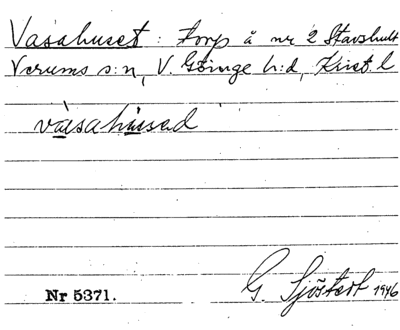 Vasahuset: torp å nr 2 Stavshult
Verums s:n, V. Göinge h:d, Krist. l
vasahused
Nr 5371.
G. Sjöstedt 1946